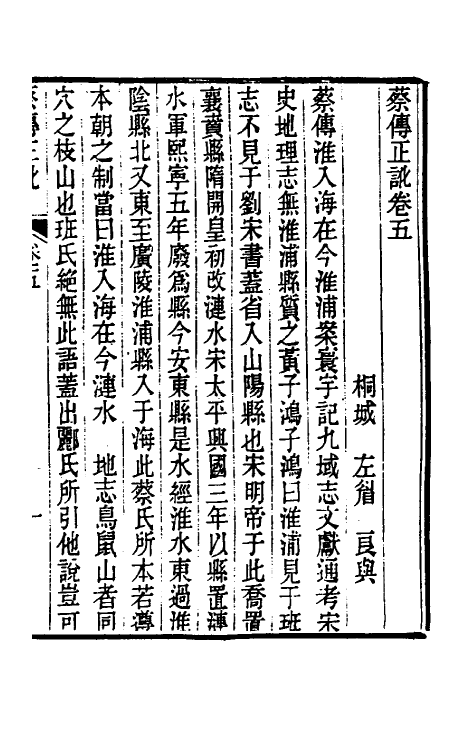 蔡傳正訛卷五
桐城 左眉 良與
蔡傳淮入海在今淮浦案寰宇記九域志文獻通考宋
史地理志無淮浦縣質之黃子鴻子鴻曰淮浦見于班
志不見于劉宋書蓋省入山陽縣也宋明帝于此喬置
襄賁縣隋開皇初改漣水宋太平興國三年以縣置漣
水軍熙寧五年廢為縣今安東縣是水經淮水東過淮
陰縣北又東至廣陵淮浦縣入于海此蔡氏所本若遵
本朝之制當曰淮入海在今漣水 地志鳥鼠山者同
穴之枝山也班氏絕無此語蓋出酈氏所引他說豈可
蔡傳正訛 卷五 一